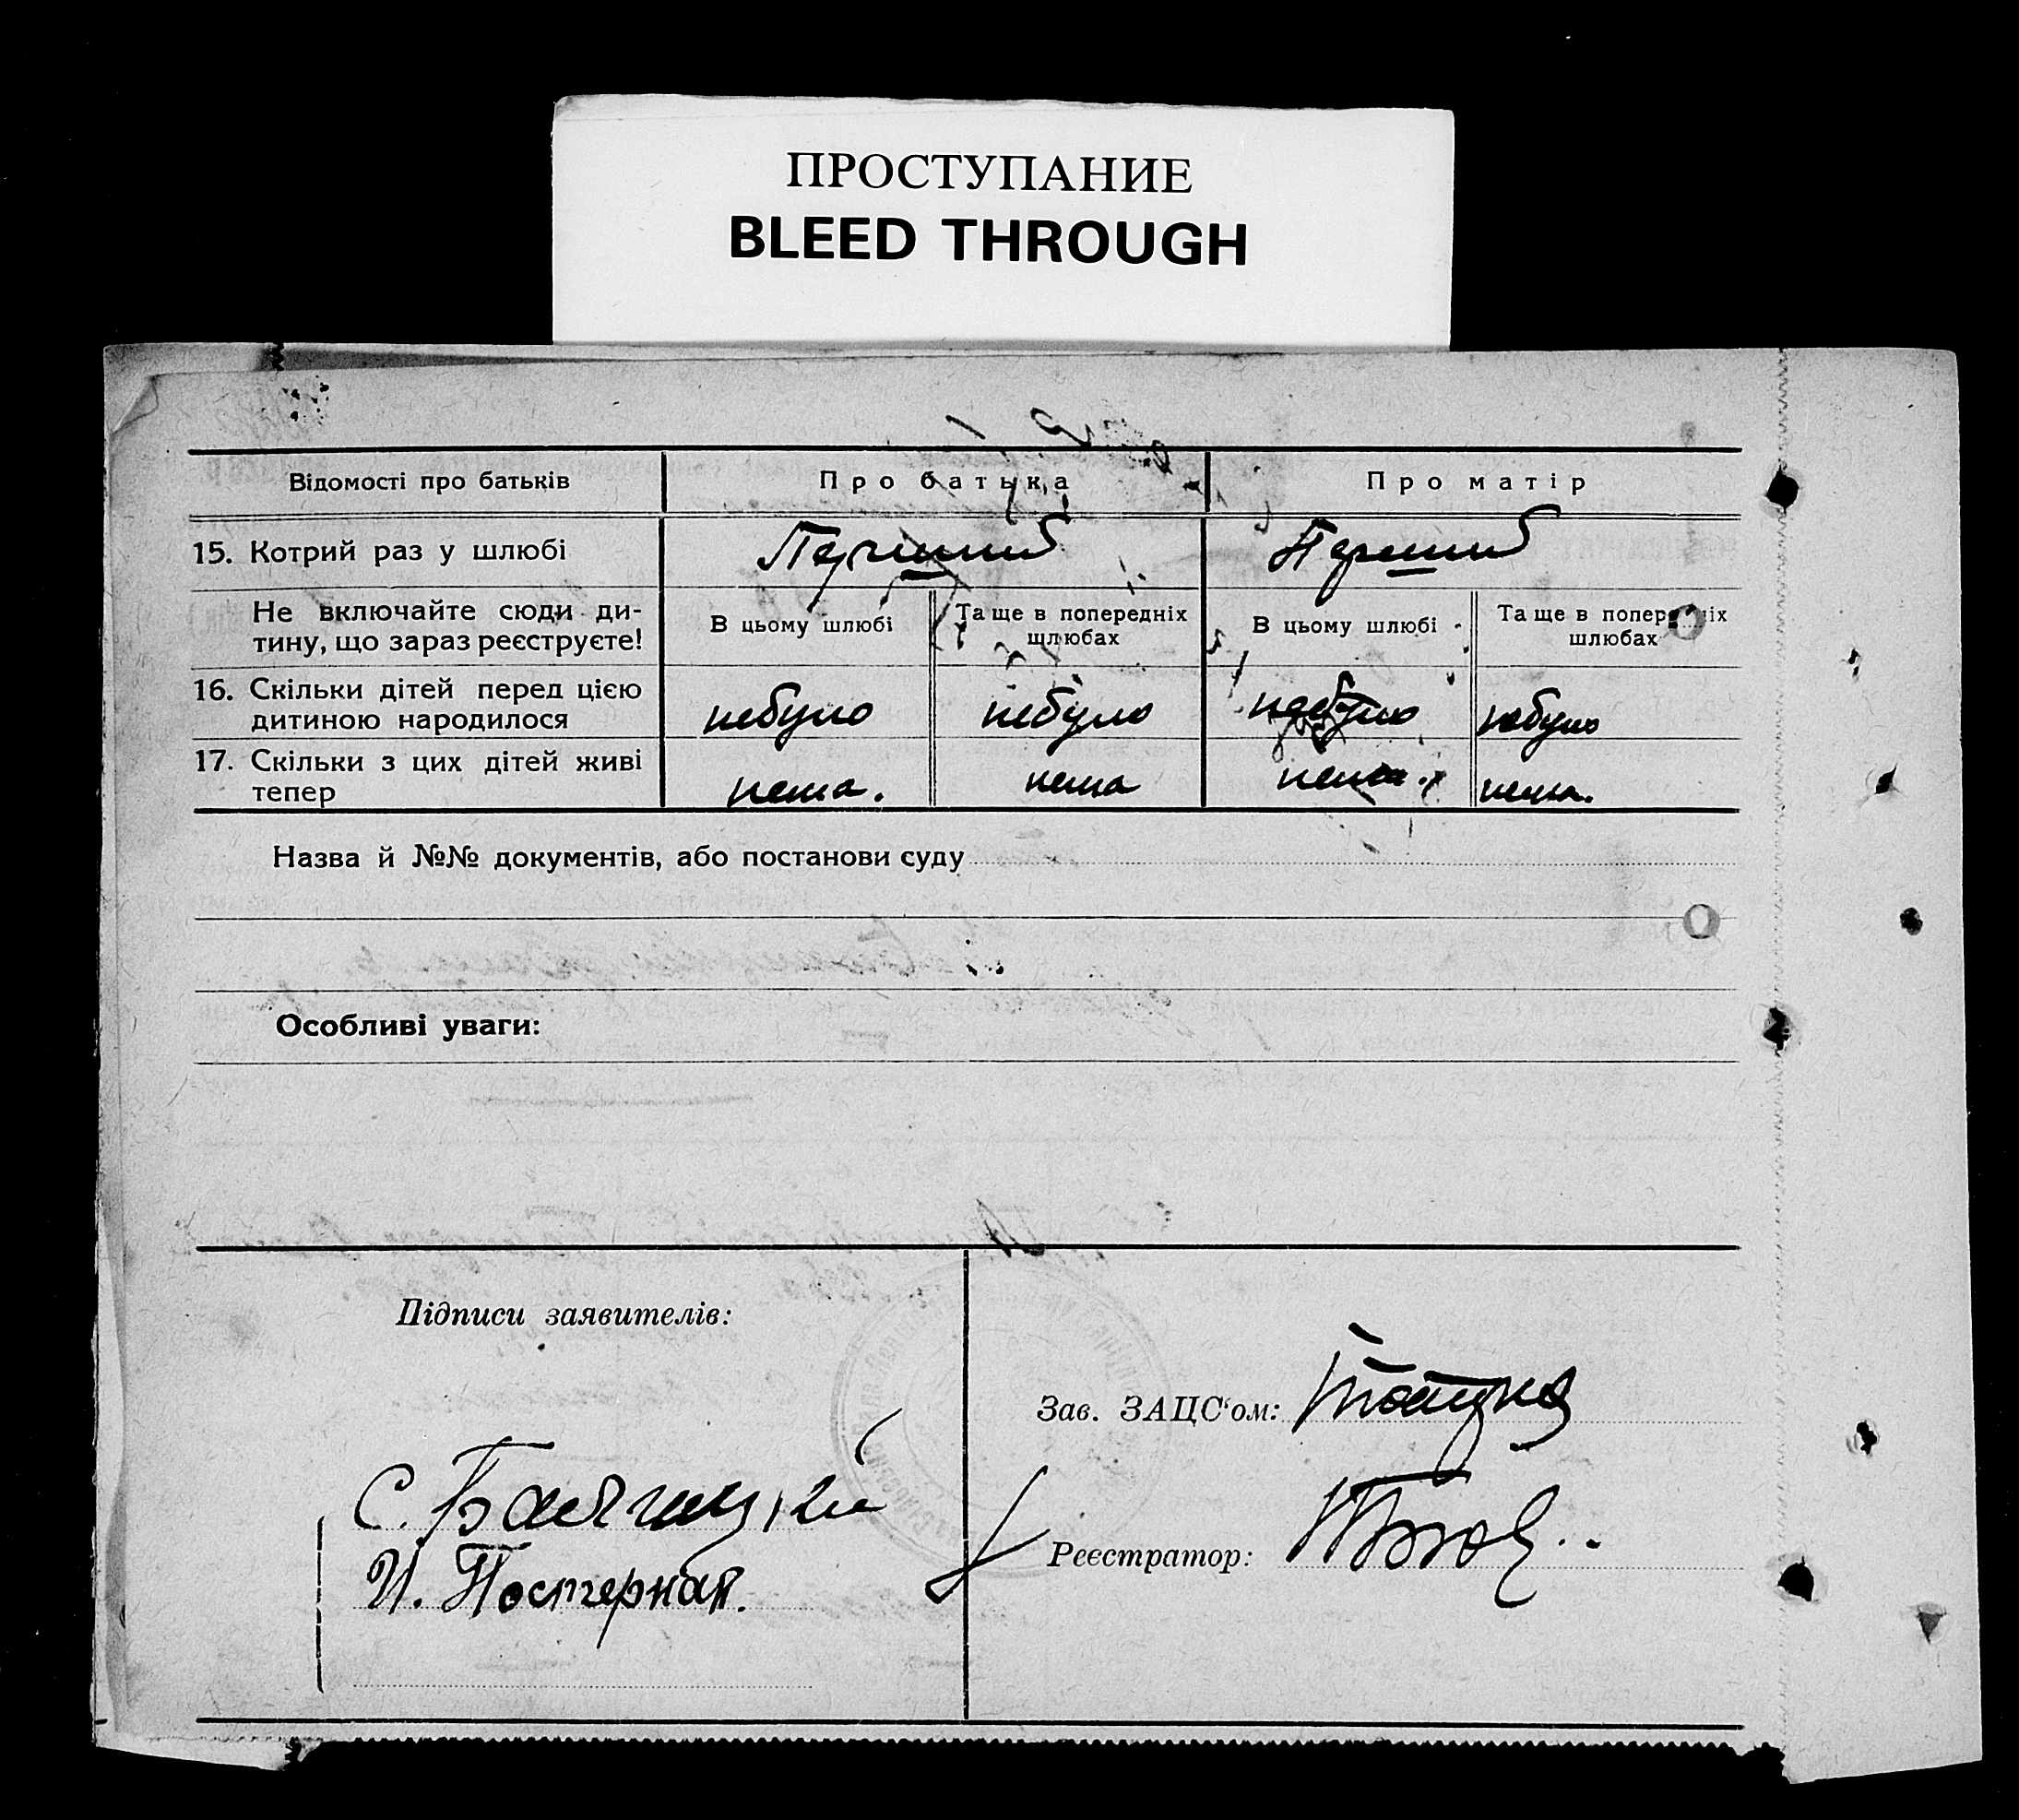 ПРОСТУПАНИЕ
BLEED THROUGH
Відомості про батьків
Про батька
Про матір
15. Котрий раз у шлюбі
Перший
Перший
Не включайте сюди ди-
тину, що зараз реєструєте!
В цьому шлюбі
Та ще в попередніх
шлюбах
В цьому шлюбі
Та ще в попередніх
шлюбах
16. Скільки дітей перед цією
дитиною народилося
небуло
небуло
небуло
небуло
17. Скільки з цих дітей живі
тепер
нема.
нема
нема.
нема.
Назва й №№ документів, або постанови суду
Особливі уваги:
Підписи заявителів:
С.
И. Постернак.
Зав. ЗАЦС‘ом:
Реєстратор: